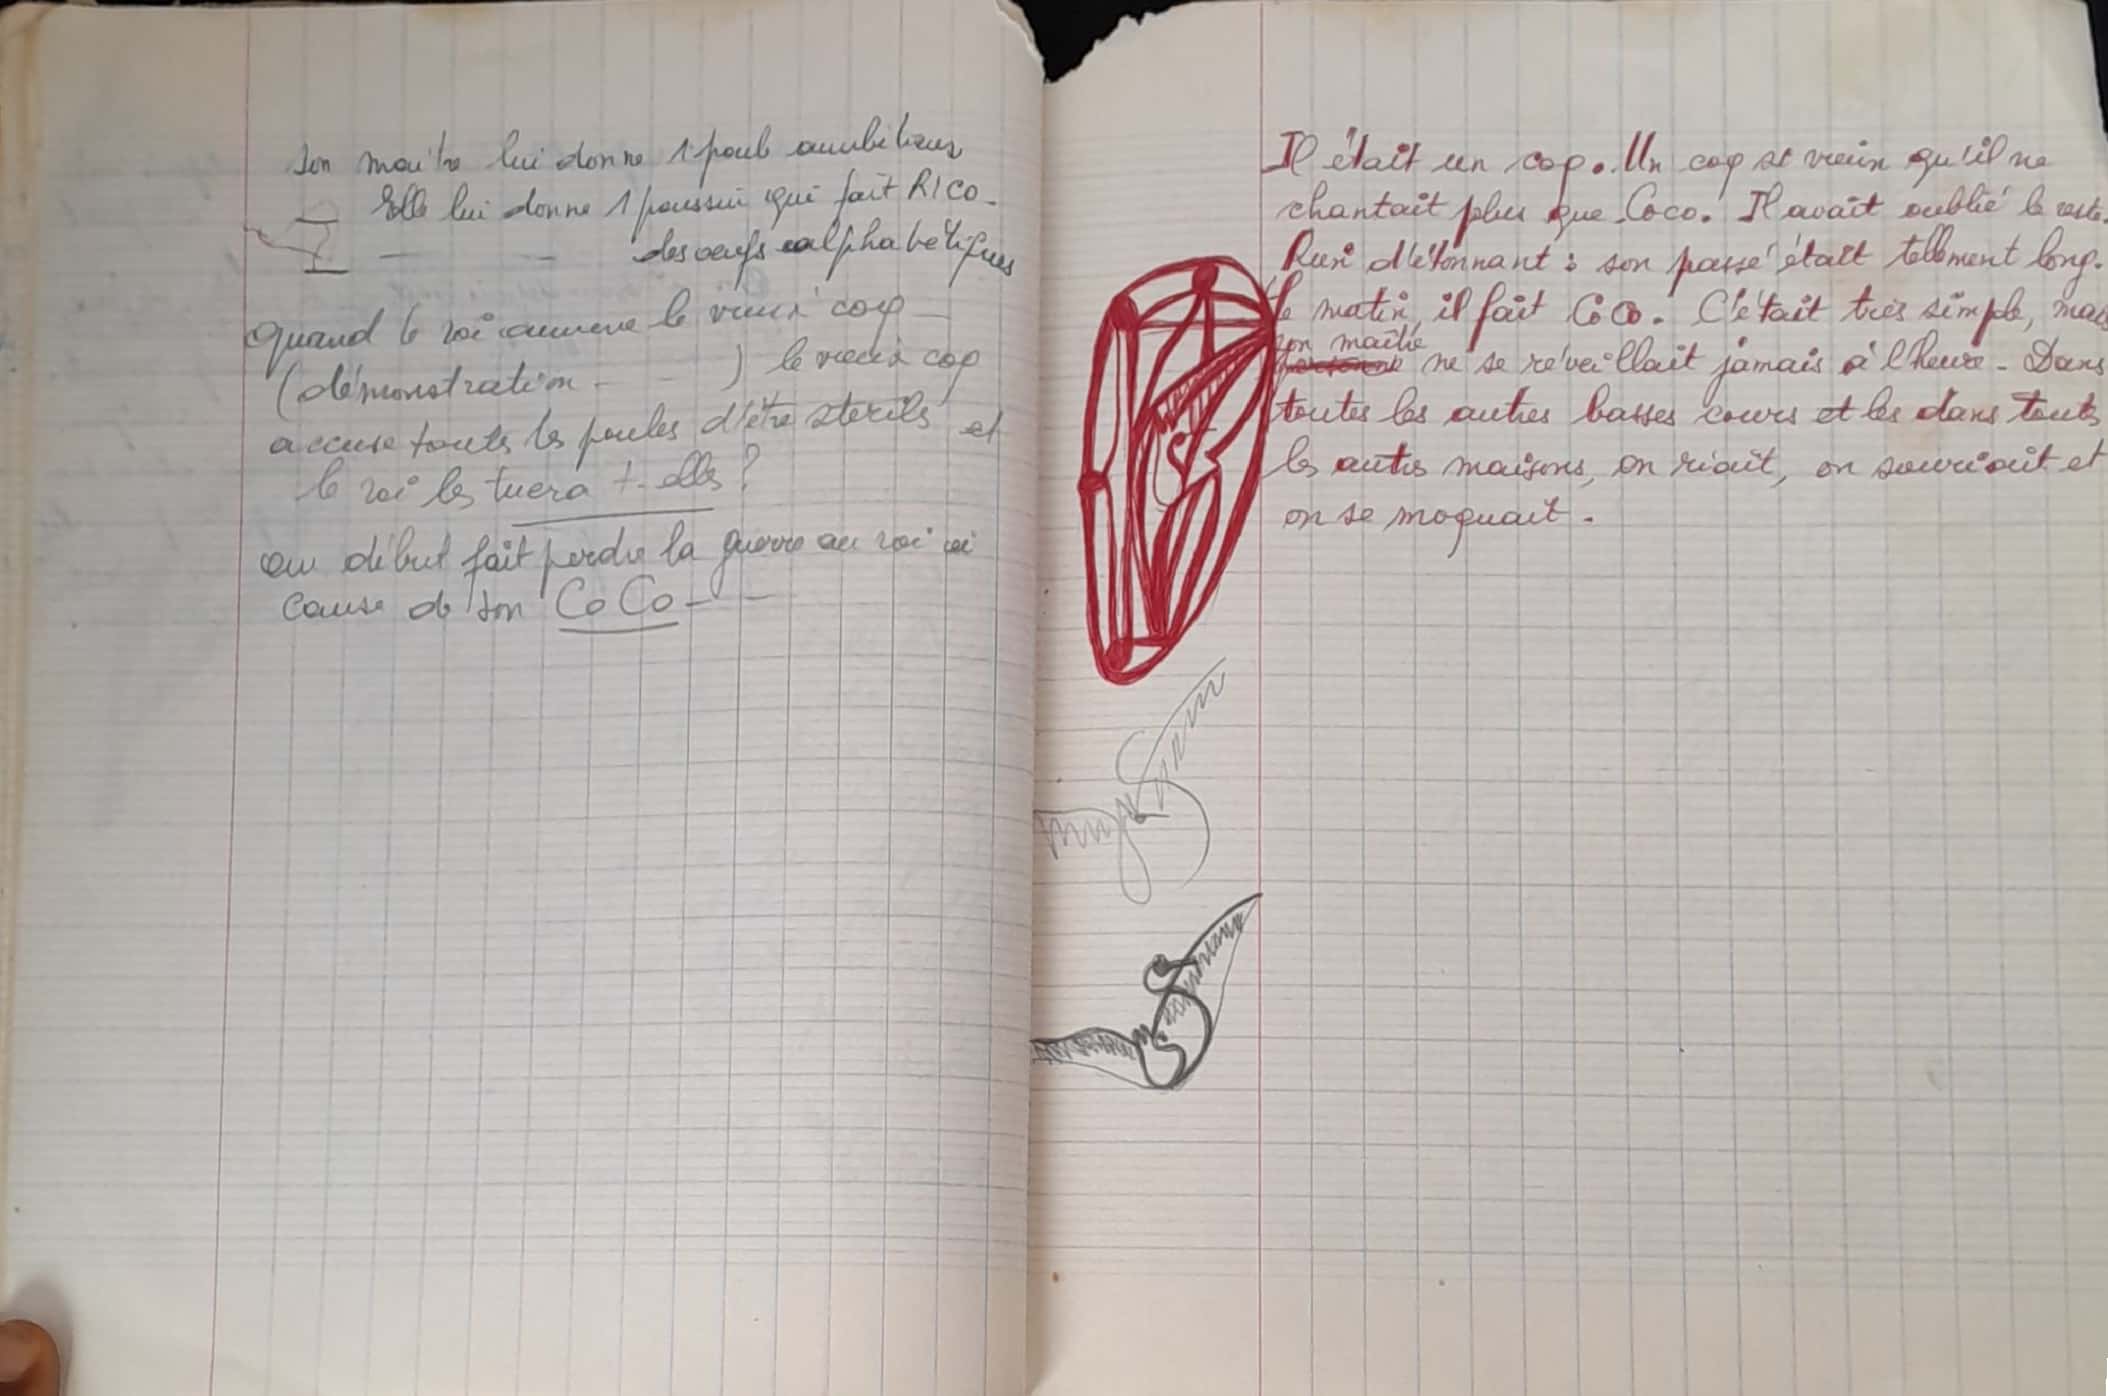 Son maître lui donne 1 poule ambitieux
— Elle lui donne 1 poussin qui fait RICO -
— — — des oeufs alphabétiques
quand le roi amène le vieux coq —
(démonstration - - - ) le vieux coq
accuse toutes les poules d'être sterils et
le roi les tuera t-elles ?
au début fait perdre la guerre au roi à
cause de son CoCo - -
Il était un coq. Un coq si vieux qu'il ne
chantait plus que Coco. Il avait oublié le reste.
Rien d'étonnant : son passé était tellement long.
le matin, il fait CoCo. C'était très simple, mais
son maître
personne ne se réveillait jamais à l'heure - Dans
toutes les autres basses cours et les dans toutes
les autres maisons, on riait, on souriait et
on se moquait.